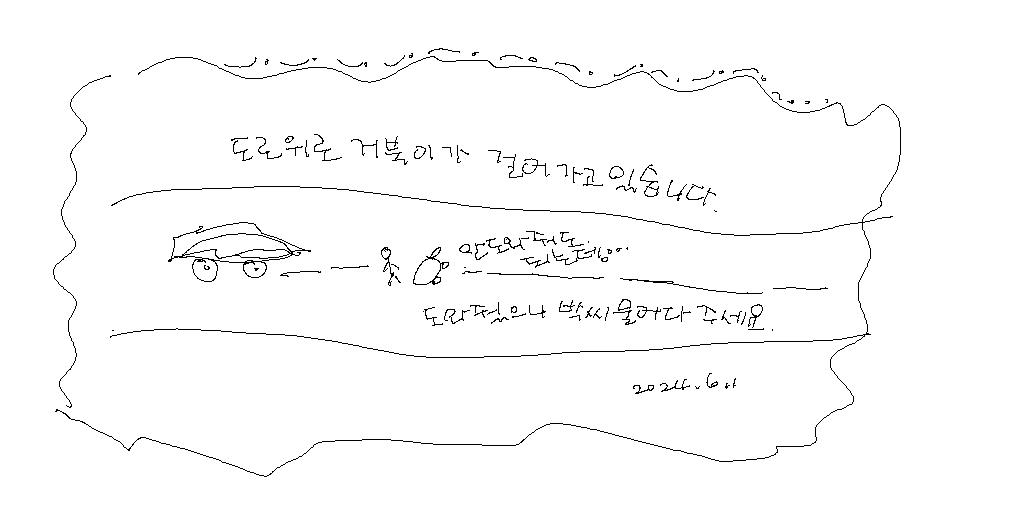 도로위로 거북이가 걸어가고 있습니다.
안도와줘도
되는데...
도와줬으니 박씨 물어다 주세요.
2024.6.11